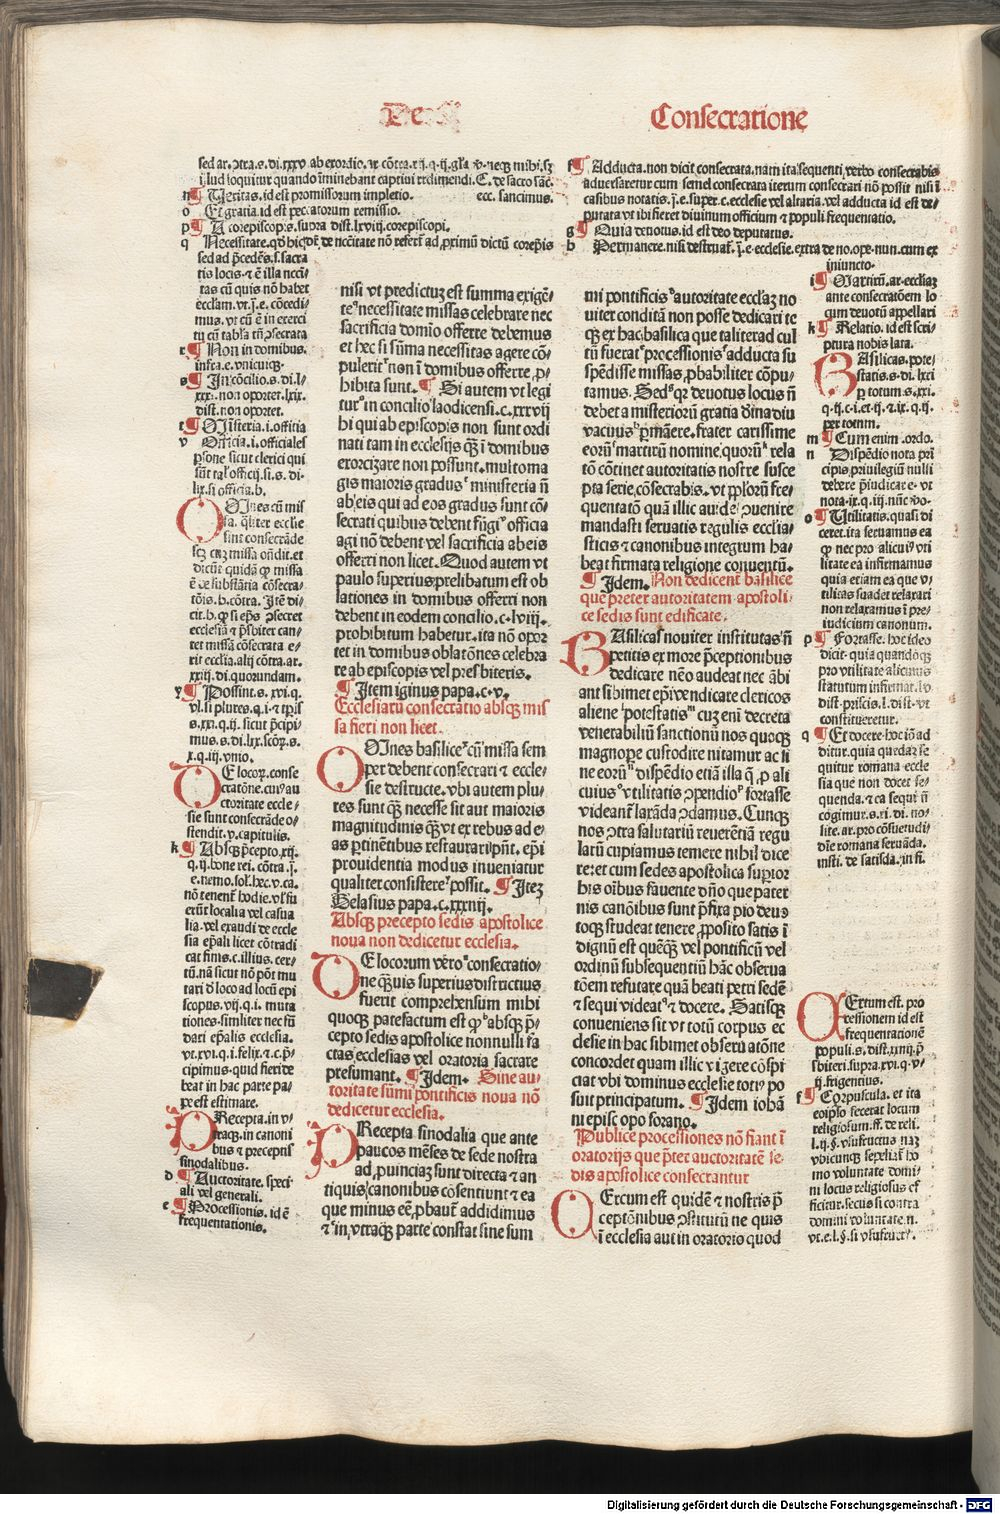 De
Consecratione
sed ar. ɔtra.s.di.xxxv.ab exordio.ar cōtra.xij.q.ij.gl'a v. necꝫ mihi.sꝫ
illud loquitur quando īminebant captiui redimendi. C. de sacro sāc.
n ¶ Veritas.id est promissorum impletio. ecc. sancimus.
o Et gratia.id est peccatorum remissio.
p ¶ A corepiscop̄s.supra dist.lxviij.corepiscopi.
q Necessitate.qd hic dr̄ de necc̄itate nō refert̄ ad,pximū dictū corep̄is
sed ad p̄cedēs.s.sacra
tis locis.⁊ ē illa neccī
tas cū quis nō habet
eccłam.vt.j.e.cōcedi⸗
mus.vt cū ē in exerci
tu cū tabła tn̄ ɔsecrata
r ¶ Non in domibus.
infra.e.vnicuiqꝫ.
s ¶ In cōcilio.s.di.l⸗
xxxi.non oportet.lxix.
dist.non oportet.
t ¶ Ministeria.i.officia
v Officia.i.officiales
p̱sone sicut clerici qui
sūt tał officij.si.s.di⸗
lix.si officia.b.
OMnes cū mis
sa. qłiter ecclie
sint consecrāde
scꝫ cuꝫ missa oñdit.et
dicūt quidā ꝙ missa
ē de substātia cōsecra⸗
tōis.h.cōtra. Itē di⸗
cit.h.ꝙ si ep̄s ɔsecret
ecclesiā ⁊ p̄sbiter can⸗
tet missā cōsecrata e⸗
rit ecclia.alij cōtra.ar.
xxiij.di.quorundam.
y ¶ Possint.s.xvi.q.
vl.si plures.q.i.⁊ tp̄is
s.xxi.q.ij.sicut p̄cipi⸗
mus.s.di.lxx.scōꝝ.s.
x.q.iij.vnio.
DE locoꝝ.conse
cratōne.cuiꝰau
ctoritate eccle⸗
sie sunt consecrāde o⸗
stendit.v.capitulis.
k ¶ Absqꝫ p̄cepto.xij.
q.ij.bone rei. cōtra.j.
e.nemo.soł.hec.v.ca.
nō tenent̄ hodie.vł fu
erūt localia vel casua
lia.vel exaudi de eccle
sia ep̄ali licet cōtradi
cat finis.c.illius.cer⸗
tū.nā sicut nō pōt mu
tari d̄ loco ad locū epi
scopus.vij.q.i. muta
tiones.similiter nec fū
dari ep̄alis ecclesia.
vt.xvi.q.i.felix.⁊.c.p̄⸗
cipimus.quid fieri de
beat in hac parte pa⸗
pe est estimare.
PRecepta.in v⸗
traqꝫ.in canoni
bus ⁊ preceptis
sinodalibus.
d ¶ Auctoritate. speci
ali vel generali.
e ¶ Processionis.id ē
frequentationis.
nisi vt predictuꝫ est summa exigē⸗
teꝰ necessitate missas celebrare nec
sacrificia domīo offerre debemus
et hec si sūma necessitas agere cō⸗
pulerit ͬ non ī domibus offerre,p⸗
hibita sunt. ¶ Si autem vt legi
turˢ in concilio laodicensi.c.xxxvij
hi qui ab episcopis non sunt ordi
nati tam in ecclesijs qꝫ̄ ī domibus
exorcizare non possunt.multoma
gis maioris gradusͭ ministeria n̄
ab eis qui ad eos gradus sunt cō⸗
secrati quibus debent fūgiᵛ officia
agi nō debent vel sacrificia ab eis
offerri non licet. Quod autem vt
paulo superius prelibatum est ob
lationes in domibus offerri non
debent in eodem concilio.c.lviij.
prohibitum habetur.ita nō opor
tet in domibus oblatōnes celebra
re ab episcopis vel presbiteris.
¶ Item iginus papa.c.v.
Ecclesiarū consecratio absqꝫ mis
sa fieri non licet.
OMnes basiliceˣ cū missa sem
per debent consecrari ⁊ eccle⸗
sie destructe.vbi autem plu⸗
res sunt qꝫ̄ necesse sit aut maioris
magnitudinis qꝫ̄ vt ex rebus ad e⸗
as ꝑtinētibus restaurari p̄nt. ep̄i
prouidentia modus inueniatur
qualiter consistereʸ possit. ¶ Iteꝫ
Gelasius papa.c.xxxnij.
Absqꝫ precepto sedis apostolice
noua non dedicetur ecclesia.
DE locorum veroᵃ consecratio⸗
ne qꝫ̄uis superius districtius
fuerit comprehensum mihi
quoqꝫ patefactum est ꝙᵇ absqꝫ p̄⸗
cepto sedis apostolice nonnulli fa
ctas ecclesias vel oratoria sacrare
presumant. ¶ Idem. Sine au⸗
toritate sūmi pontificis noua nō
dedicetur ecclesia.
PRecepta sinodalia que ante
paucos mēses de sede nostra
ad,puinciaꝫ sunt directa ⁊ an
tiquis canonibus cōsentiunt ⁊ ea
que minus eē,pbaut̄ addidimus
⁊ᶜin,vtraqꝫ parte constat sine sum
f ¶ Adducta.non dicit consecrata.nam ita sequenti verbo consecrabis
aduersaretur cum semel consecrata iterum consecrari nō possit nisi ī
casibus notatis.j.e.super.c.ecclesie vel altaria.vel adducta id est de⸗
putata vt ibi fieret diuinum officium ⁊ populi frequentatio.
g ¶ Quia deuotus.id est deo deputatus.
h Permanere.nisi destruat̄.j.e.ecclesie.extra de no.ope.nun.cum ex
iniuncto.
mi pontificisᵈ autoritate eccłaꝫ no
viter conditā non posse dedicari te
qꝫ ex hac basilica que taliterad cul
tū fuerat ͤ processionis ͬ adducta su
spēdisse missas,pbabiliter cōpu⸗
tamus. Sedᵍ qꝛ deuotus locus n̄
debet a misteriorū gratia d̄ina diu
vacuus ͪ p̱mānere.frater carissime
eorūⁱ martirū nomine,quorūᵏ rela
tō cōtinet autoritatis nostre susce
pta serie,cōsecrabis.vt p̱pl'orū fre⸗
quentatō quā illic audēs ɔuenire
mandasti seruatis regulis ecclia⸗
sticis ⁊ canonibus integrum ha⸗
beat firmata religione conuentū.
¶ Idem. Non dedicent̄ basilice
que preter autoritatem apostoli⸗
ce sedis sunt edificate.
BAsilicasˡ nouiter institutas n̄
petitis ex more p̄ceptionibus
dedicare nēo audeat nec ābi
ant sibimet epī vendicare clericos
aliene ˡpotestatisᵐ cuꝫ enī decreta
venerabiliū sanctionū nos quoqꝫ
magnope custodire nitamur ac si
ne eorūⁿ dispēdio etiā illa q̄ p ali
cuius ͦ vtilitatis ɔpendioᵖ fortasse
videant̄ laxāda ɔdamus. Cumqꝫ
nos ɔtra salutariū reuerētiā regu
larū cupiamus temere nihil dice
re:et cum sedes apostolica supior
his oībus fauente dño que pater
nis canōibus sunt p̄fixa pio deuo
toqꝫ studeat tenere,pposito satis ī
dignū est quēqꝫ vel pontificū vel
ordinū subsequentiū hāc obserua
tōem refutare quā beati petri sedē
⁊ sequi videatꝰ ⁊ docere. Satisqꝫ
conueniens sit vt totū corpus ec
clesie in hac sibimet obseruatōne
concordet quam illic vigere cōspi
ciat vbi dominus ecclesie totiꝰ po
suit principatum. ¶ Idem iohā
ni episcopo sorano.
Publice processiones nō fiant ī
oratorijs que p̄ter auctoritatē se⸗
dis apostolice consecrantur
CErtum est quidē ͤ nostris p̄
ceptōnibus ɔstitutū ne quis
ī ecclesia aut in oratorio quod
i ¶ Martirū.ar.eccliaꝫ
ante consecratōem lo
cum deuotū appellari
k ¶ Relatio.id est scri⸗
ptura nobis lata.
BAsilicas.pote⸗
statis.s.di.lxxi
p totum.s.xxi.
q.ij.c.i.et.ij.⁊.ix.q.ij.
per totum.
m ¶ Cum enim.ordo.
n Dispēdio nota prī
cipis priuilegiū nulli
debere p̄iudicare.vt
nota.ix.q.iij.nūc vo.
o ¶ Utilitatis.quasi di
ceret.ita seruamus ea
ꝙ nec pro alicuiꝰ vti
litate ea infirmamus
quia etiam ea que v⸗
tilitas suadet relaxari
non relaxamus ī pre⸗
iudicium canonum.
p ¶ Fortasse. hoc ideo
dicit.quia quandoqꝫ
pro vtilitate alicuius
statutum infirmat̄.lv
dist.priscis.l.dist.vt
constitueretur.
q ¶ Et docere.hoc iō ad
ditur.quia quedaꝫ se
quitur romana eccle
sia que non docet se⸗
quenda.⁊ ea sequi n̄
cogimur.s.xi.di. no⸗
lite.ar.pro cōsuetudi⸗
dīe romana seruāda.
insti. de satisda.in fi.
CErtum est. pro
cessionem id est
frequentationē
populi.s.dist.xxiiij.p̄
sbiteri.supra.xvi.q.v⸗
ij.frigentius.
f ¶ Corpuscula. et ita
eoipso fecerat locum
religiosum.ff.de reli.
l.ij.§.vsufructus naꝫ
vbicunqꝫ sepeliat̄ ho
mo voluntate domi⸗
ni locus religiosus ef
ficitur.secus si contra
domini voluntatē.n.
vt.e.l.§.si vsufruct'.
Digitalisierung gefördert durch die Deutsche Forschungsgemeinschaft - DFG